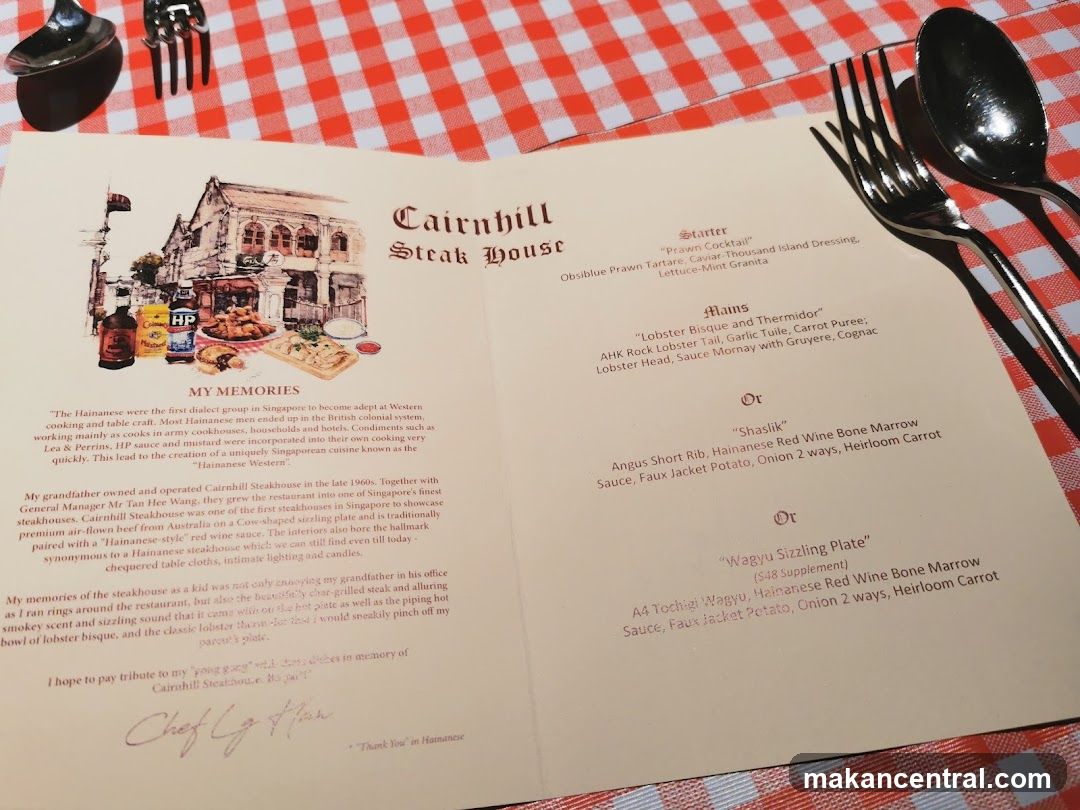 Cairnhill
Steak House
HP
MY MEMORIES
"The Hainanese were the first dialect group in Singapore to become adept at Western
cooking and table craft. Most Hainanese men ended up in the British colonial system,
working mainly as cooks in army cookhouses, households and hotels. Condiments such as
Lea & Perrins, HP sauce and mustard were incorporated into their own cooking very
quickly. This lead to the creation of a uniquely Singaporean cuisine known as the
"Hainanese Western".
My grandfather owned and operated Cairnhill Steakhouse in the late 1960s. Together with
General Manager Mr Tan Hee Wang, they grew the restaurant into one of Singapore's finest
steakhouses. Cairnhill Steakhouse was one of the first steakhouses in Singapore to showcase
premium air-flown beef from Australia on a Cow-shaped sizzling plate and is traditionally
paired with a "Hainanese-style" red wine sauce. The interiors also bore the hallmark
synonymous to a Hainanese steakhouse which we can still find even till today -
chequered table cloths, intimate lighting and candles.
My memories of the steakhouse as a kid was not only annoying my grandfather in his office
as I ran rings around the restaurant, but also the beautifully char-grilled steak and alluring
smokey scent and sizzling sound that it came with on the hot plate as well as the piping hot
bowl of lobster bisque, and the classic lobster thermidor that I would sneakily pinch off my
parent's plate.
I hope to pay tribute to my "gong gong" with these dishes in memory of
Cairnhill Steakhouse.
Chef Lg Han
* "Thank You" in Hainanese
Starter
"Prawn Cocktail"
Obsiblue Prawn Tartare, Caviar-Thousand Island Dressing,
Lettuce-Mint Granita
Mains
"Lobster Bisque and Thermidor"
AHK Rock Lobster Tail, Garlic Tuile, Carrot Puree;
Lobster Head, Sauce Mornay with Gruyere, Cognac
Or
"Shaslik"
Angus Short Rib, Hainanese Red Wine Bone Marrow
Sauce, Faux Jacket Potato, Onion 2 ways, Heirloom Carrot
Or
"Wagyu Sizzling Plate"
($48 Supplement)
A4 Tochigi Wagyu, Hainanese Red Wine Bone Marrow
Sauce, Faux Jacket Potato, Onion 2 ways, Heirloom Carrot
makancentral.com